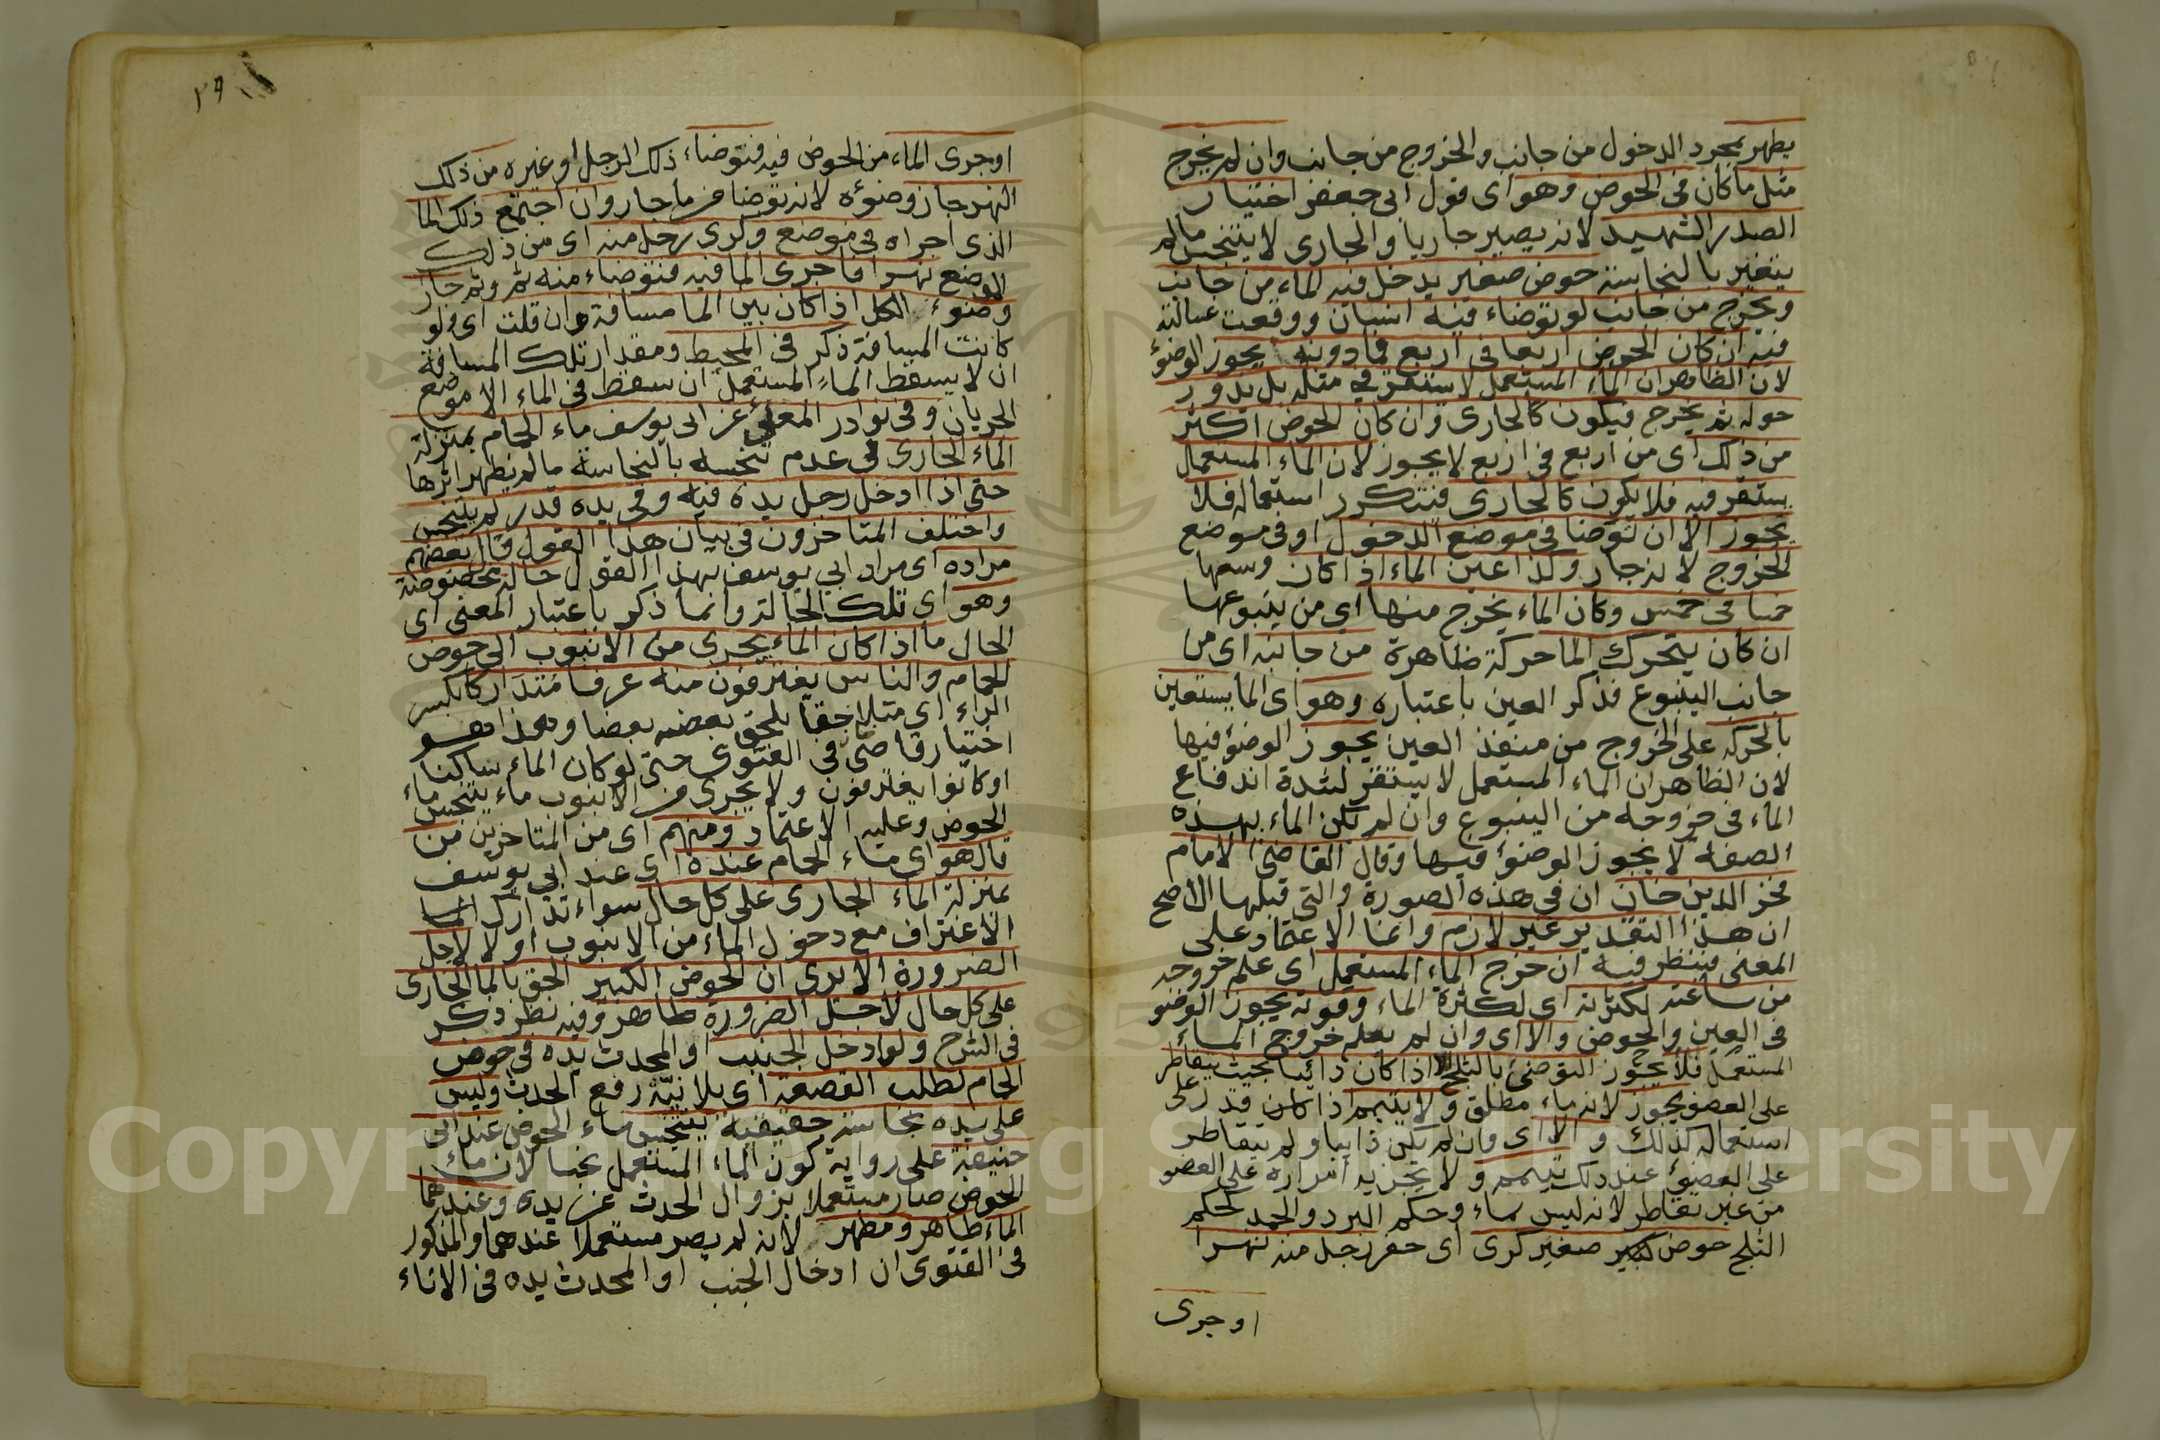 يطهر بمجرد الدخول من جانب والخروج من جانب وان لم يخرج
مثل ما كان في الحوض وهو اى قول ابي جعفر اختيار
الصدر الشهيد لانه يصير جاريا والجارى لا يتنجس ما لم
يتغير بالنجاسة حوض صغير يدخل فيه الماء من جانب
ويخرج من جانب لو توضاء فيه انسان ووقعت غسالته
فيه ان كان الحوض اربعا في اربع فما دونه يجوز الوضؤ
لان الظاهر ان الماء المستعمل لا يستقر في مثله بل يدور
حوله ثم يخرج فيكون كالجارى وان كان الحوض اكثر
من ذلك اى من اربع في اربع لا يجوز لان الماء المستعمل
يستقر فيه فلا يكون كالجارى فتتكرر استعماله فلا
يجوز الا ان توضا في موضع الدخول او في موضع
الخروج لانه جار وكذا عين الماء اذا كان وسعها
خمسا في خمس وكان الماء يخرج منها اي من ينبوعها
ان كان يتحرك الما حركة ظاهرة من جانبه اى من
جانب الينبوع فذكر العين باعتباره وهو اى الما يستعين
بالحركة على الخروج من منفذ العين يجوز الوضؤ فيها
لان الظاهر ان الماء المستعمل لا يستقر لشدة اندفاع
الماء في خروجه من الينبوع وان لم يكن الماء بهذه
الصفة لا يجوز الوضؤ فيها وقال القاضي الامام
فخر الدين خان ان في هذه الصورة والتي قبلها الاصح
ان هذا التقدير غير لازم وانما الاعتماد على
المعنى فينظر فيه ان خرج الماء المستعمل اى علم خروجه
من ساعته لكثرته اى لكثرة الماء وقوته يجوز الوضو
في العين والحوض والا اى وان لم يعلم خروج الماء
المستعمل فلا يجوز التوضئ بالثلج اذا كان ذائبا بحيث يتقاطر
على العضو يجوز لانه ماء مطلق ولا يتيمم اذا كان قدر على
استعماله كذلك والا اى وان لم يكن ذايبا ولم يتقاطر
على العضؤ عند ذلك تيمم ولا يجزيه امراره على العضو
من غير تقاطر لانه ليس بماء وحكم البرد والجمد لحكم
الثلج حوض كبير صغير كرى اى حفر رجل منه نهرا
او جرى
٢٩
او جرى الماء من الحوض فيه فتوضاء ذلك الرجل او غيره من ذلك
النهر جاز وضوئه لانه توضا من ما جار وان اجتمع ذلك الما
الذى اجراه في موضع وكرى رجل منه اى من ذلك
الموضع نهرا فاجرى الما فيه فتوضاء منه ثم وثم جاز
وضوء الكل اذا كان بين الما مسافة وان قلت اى ولو
كانت المسافة ذكر في المحيط ومقدار تلك المسافة
ان لا يسقط الماء المستعمل ان سقط في الماء الا موضع
الجريان وفي نوادر المعلى عن ابي يوسف ماء الحمام بمنزلة
الماء الجارى في عدم تنجسه بالنجاسة ما لم يظهر اثرها
حتى اذا ادخل رجل يده فيه وفي يده قدر لم يتنجس
واختلف المتاخرون في بيان هذا القول قال بعضهم
مراده اى مراد ابي يوسف بهذا القول حالة مخصوصة
وهو اى تلك الحالة وانما ذكر باعتبار المعنى اى
الحال ما اذا كان الماء يجرى من الانبوب الى حوض
الحمام والناس يغترفون منه غرفا متداركا بكسر
الراء اى متلاحقا يلحق بعضه بعضا وهذا هو
اختيار قاضي في الفتوى حتى لو كان الماء ساكنا
او كانوا يغترفون ولا يجرى من الانبوب ماء يتنجس ماء
الحوض وعليه الاعتماد ومنهم اى من المتاخرين من
قال هو اى ماء الحمام عنده اى عند ابي يوسف
بمنزلة الماء الجارى على كل حال سواء تدارك الناس
الاغتراف مع دخول الماء من الانبوب او لا لاجل
الضرورة الا يرى ان الحوض الكبير الحق بالما الجارى
على كل حال لاجل الضرورة طاهر وفيه نظر ذكر
في الشرح ولو ادخل الجنب او المحدث يده في حوض
الحمام لطلب القصعة اى بلا نية رفع الحدث وليس
على يده نجاسة حقيقية يتنجس ماء الحوض عند ابي
حنيفة على رواية كون الماء المستعمل نجسا لان ماء
الحوض صار مستعملا بزوال الحدث عن يده وعندهما
الماء طاهر ومطهر لانه لم يصر مستعملا عندهما والمذكور
في الفتوى ان ادخال الجنب او المحدث يده في الاناء
Copyright King Saud University